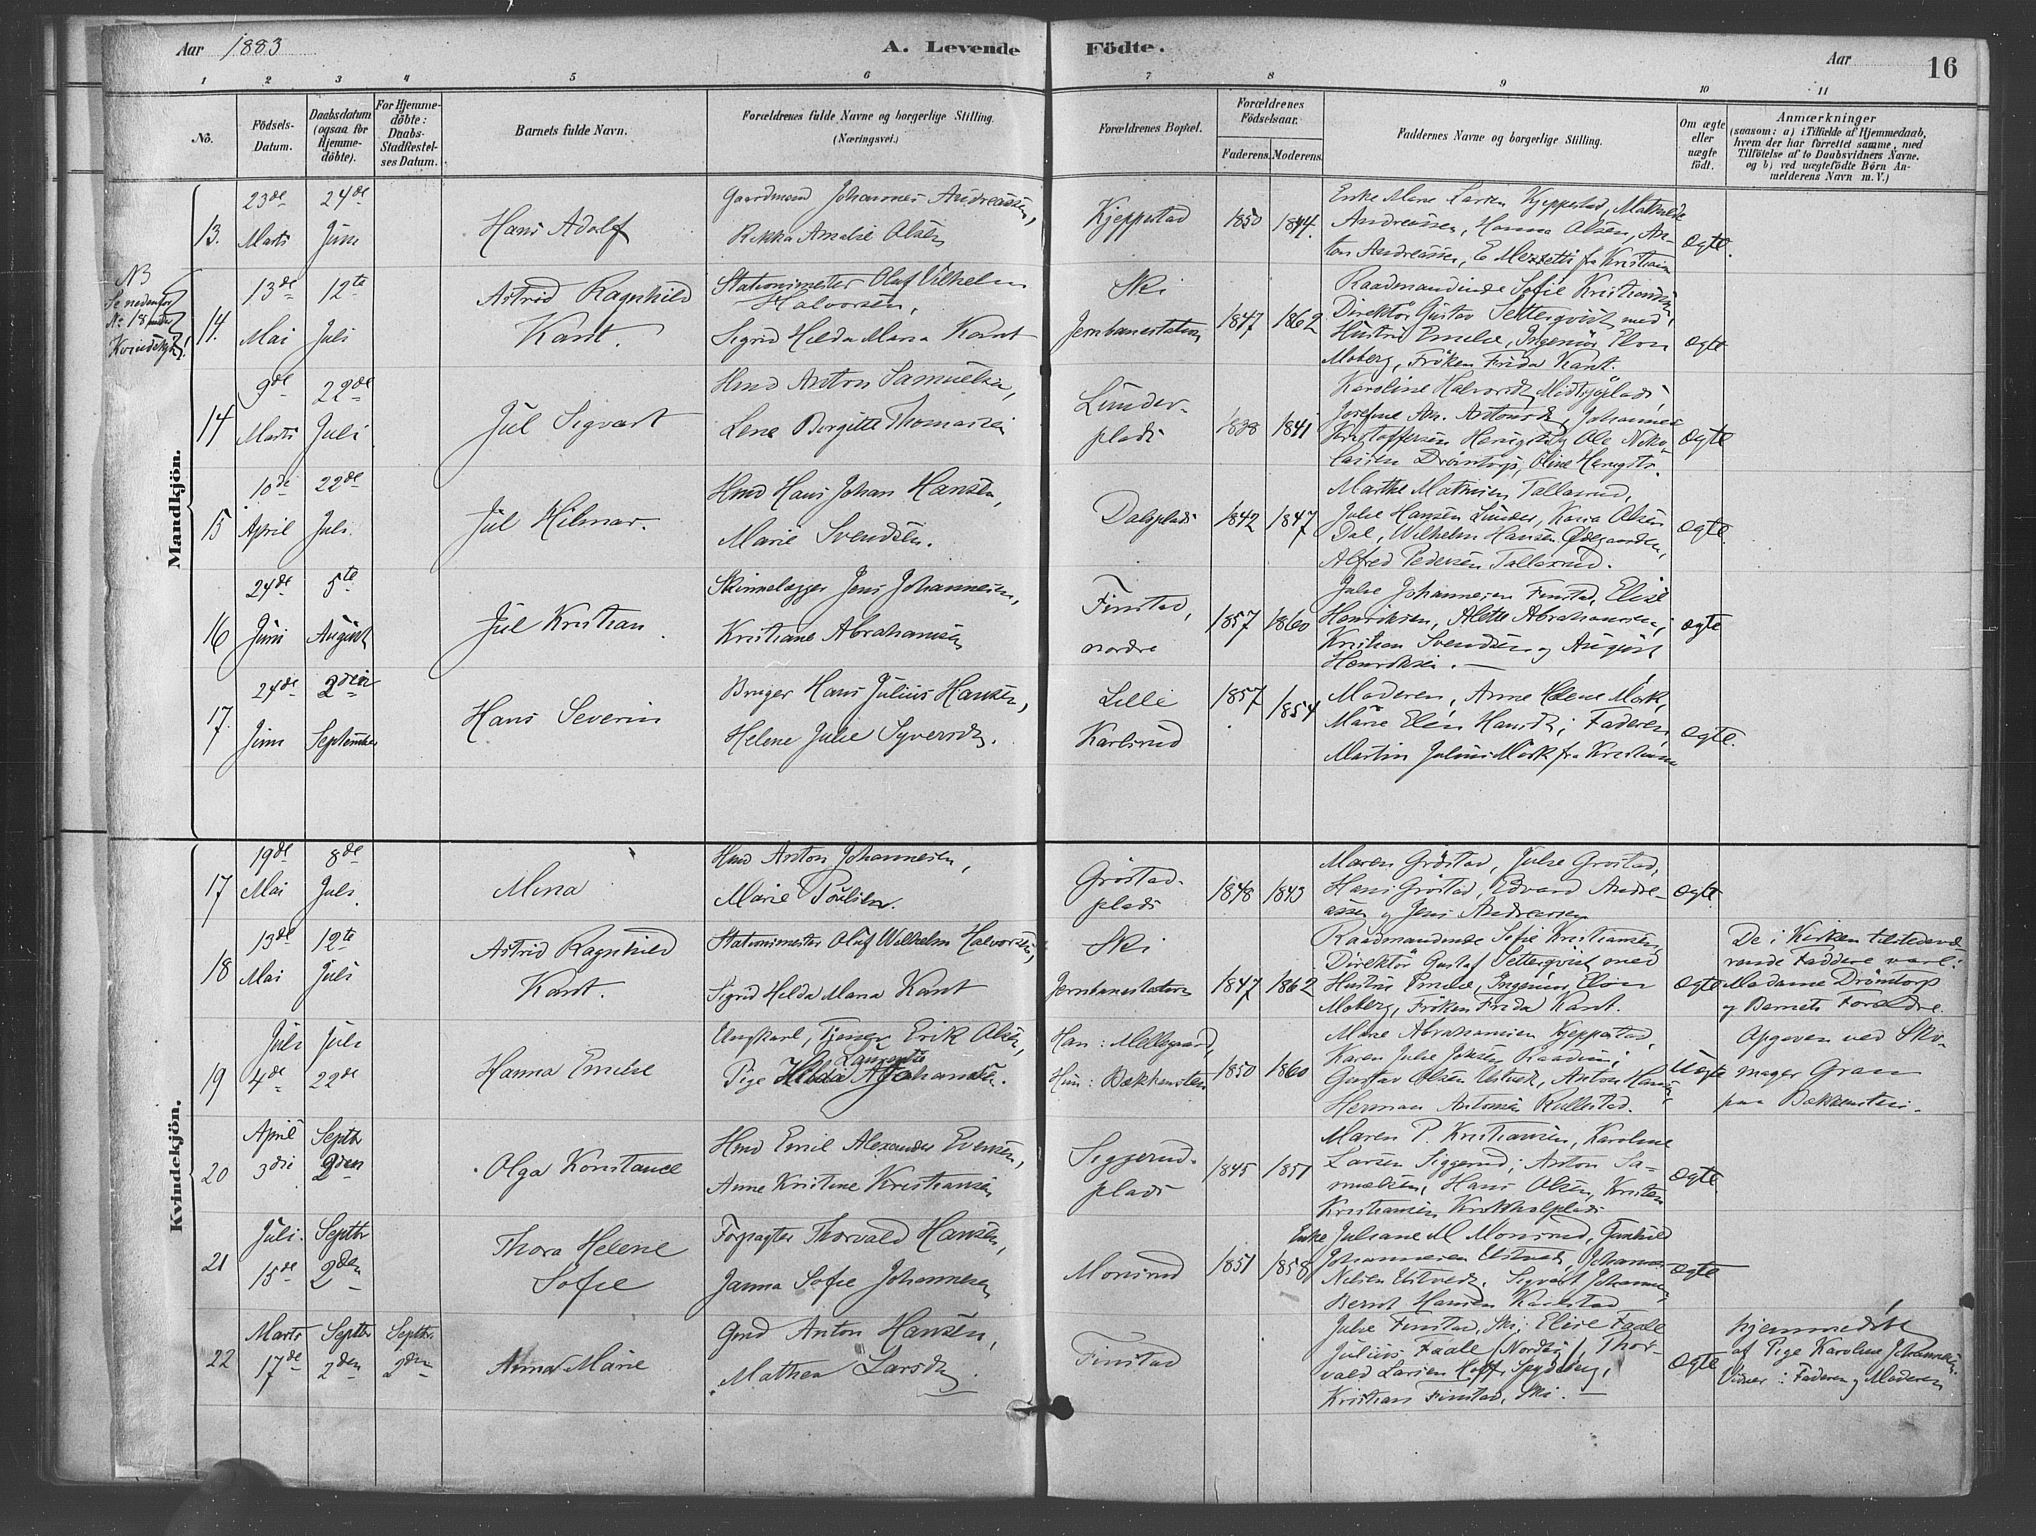 Aar 1883
A. Levende Födte.
Aar
16
1 2 3 4 5 6 7 8 9 10 11
No.
Födsels-Datum.
Daabsdatum (ogsaa for Hjemme-döbte).
For Hjemme-döbte: Daabs-Stadfæstel-ses Datum.
Barnets fulde Navn.
Forældrenes fulde Navne og borgerlige Stilling. (Næringsvei.)
Forældrenes Bopæl.
Forældrenes Födselsaar.
Faderens. Moderens.
Faddernes Navne og borgerlige Stilling.
Om ægte eller uægte födt.
Anmærkninger
(saasom: a) i Tilfælde af Hjemmedaab,
hvem der har forrettet samme, med
Tilföielse af to Daabsvidners Navne.
og b) ved uægtefödte Börn An-
melderens Navn m. V.)
Mandkjön.
13. 23de Marts 24de Juni
Hans Adolf
Gaardmand Johannes Andreassen,
Rikka Amalie Olsen
Kjeppestad
1850 1844.
Enke Maren Larsen Kjeppestad, Mathilde
Andreassen, Hanna Olsen, An-
ton Andreassen, E Mezzetti fra Kristiania
Ægte.
NB
Se nedenfor
No 18 under
Kvindekjön!
14. 13de Mai 12te Juli
Astrid Ragnhild
Kant.
Stationsmester Oluf Vilhelm
Halvorsen,
Sigrid Hilda Maria Kant
Ski
Jernbanestation
1847 1862
Raadmandinde Sofie Kristiansen,
Direktör Gustav Setterqvist med
Hustru Emelie, Ingeniör Elon
Moberg, Fröken Frida Kant.
Ægte
14 9de Marts 22de Juli
Jul Sigvart
Hmd Anton Samuelsen,
Lene Birgitte Thomassen
Lunder-
plads
1838 1841
Karoline Halvorsd. Midtsjöplads,
Josefine An. Antonsd., Johannes
Kristoffersen Haugstad, Ole Niko-
laisen Drömtorp, Oline Haugst.
Ægte
15 10de April 22de Juli.
Jul Hilmar.
Hmd Hans Johan Hansen,
Marie Svendsen.
Dalsplads
1842 1847
Marthe Mathisen Tallasrud,
Julie Hansen Lunder, Karia Olsen
Dal, Wilhelm Hansen Ødegaarden,
Alfred Pedersen Tallasrud.
Ægte.
16 24de Juni 5te August
Jul Kristian.
Skinnelægger Jens Johannesen,
Kristiane Abrahamsen
Finstad,
nordre
1857 1860
Julie Johannesen Finstad, Elise
Henriksen, Alette Abrahamsen,
Kristian Svendsen og August
Henriksen. —
Ægte
17. 24de Juni 2den September
Hans Severin
Bruger Hans Julius Hansen,
Helene Julie Syversd.
Lille
Karlsrud
1857 1854
Moderen, Anne Helene Mörk,
Marie Elen Hansd.; Faderen,
Martin Julius Mörk fra Kristiania
Ægte.
Kvindekjön.
17 19de Mai 8de Juli.
Mina
Hmd Anton Johannesen,
Marie Poulsen.
Gröstad-
plads
1848 1843
Maren Gröstad, Julie Gröstad,
Hans Gröstad, Edvard Andre-
assen og Jens Andreassen
Ægte.
18 13de Mai 12te Juli
Astrid Ragnhild
Kant.
Stationsmester Oluf Wilhelm Halvorsen,
Sigrid Hilda Maria Kant
Ski
Jernbanestation
1847 1862
Raadmandinde Sofie Kristiansen,
Direktör Gustaf Setterqvist med
Hustru Emelie, Ingeniör Elon
Moberg, Fröken Frida Kant.
Ægte
De i Kirken tilstedevæ-
rende Faddere vare:
Madame Drömtorp
og Barnets Forældre.
19 Juli 4de Juli 22de
Hanna Emelie
Ungkarl, Tjener Erik Olsen,
Pige Laurentse Johansen.
Han: Mellegaard,
Hun: Bækkensten
1850 1860
Marie Abrahamsen Kjeppestad,
Karen Julie Joksen Raadim;
Gustav Olsen, Anton Hansen,
Herman Antonsen Kullestad.
Uægte
Opgiven ved Sko-
mager Gran
paa Bækkensten.
20 April 3die Septbr 2den
Olga Konstance
Hmd Emil Alexander Evensen,
Anne Kristine Kristiansen
Siggerud-
plads
1845 1851
Maren P. Kristiansen, Karoline
Larsen Siggerud; Anton Sa-
muelsen, Hans Olsen, Kristian
Kristiansen Krokholplads
Ægte.
21 Juli. 15de Septbr 2den
Thora Helene
Sofie
Forpagter Thorvald Hansen,
Janna Sofie Johannesen
Monsrud
1851 1858
Enke Juliane M. Monsrud, Gunhild
Johannesen Elstved, Johannes
Nilsen Elstved, Sigvart Johannesen,
Bernt Hansen Kaelstad
Ægte
22 Marts 17de Septbr 2den Septbr. 2den
Anna Marie
Gmd Anton Hansen,
Mathea Larsd.
Finstad
Julie Finstad, Ski; Elise Faale
Julius Faale (Nordby), Thor-
vald Larsen Hoff, Spydeberg,
Kristian Finstad, Ski. —
Ægte
Hjemmedöbt
af Pige Karoline Johannesen.
Vidner: Faderen og Moderen